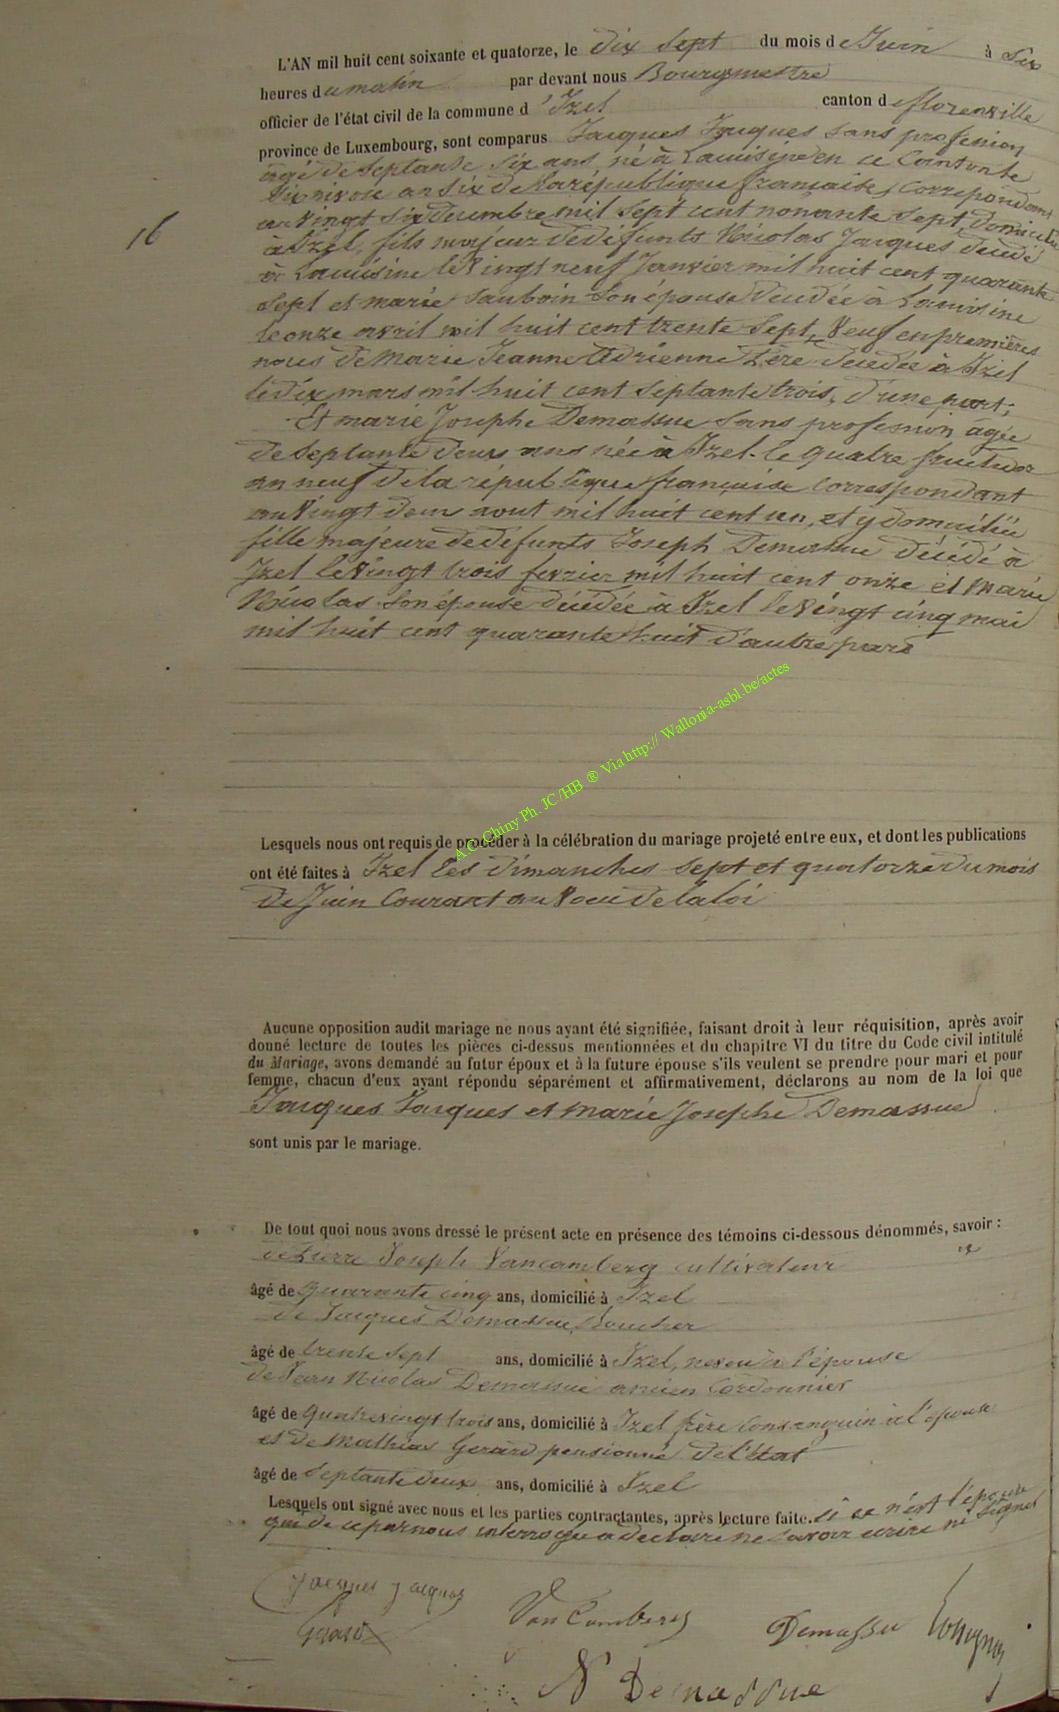 L'AN mil huit cent soixante et quatorze, le dix sept du mois de Juin à six
heures du matin par devant nous Bourgmestre
officier de l'état civil de la commune d'Izel canton de florenville
province de Luxembourg, sont comparus Jacques Jacques sans profession
agé de septante six ans, né à Lacuisine en ce Canton le
six nivose an six de la république française, Correspondant
au vingt six decembre mil sept cent nonante sept, domicilié
16
à Izel, fils majeur de défunts Nicolas Jacques décédé
à Lacuisine le vingt neuf Janvier mil huit cent quarante
sept et marie Sauboin son épouse décédée à Lacuisine
le onze avril mil huit cent trente sept, Veuf en premières
noces de Marie Jeanne Adrienne décédée à Izel
le dix mars mil huit cent septante trois, d'une part;
Et marie Josephe Demassue sans profession agée
de septante deux ans née à Izel le quatre fructidor
an neuf de la république française correspondant
au vingt deux aout mil huit cent un, et y domiciliée
fille majeure de défunts Joseph Demassue décédé à
Izel le vingt trois fevrier mil huit cent onze et Marie
Nicolas son épouse décédée à Izel le vingt cinq mai
mil huit cent quarante huit d'autre part
A C Chiny Ph. JC /HB ® Via http:// Wallonia-asbl.be/actes
Lesquels nous ont requis de procéder à la célébration du mariage projeté entre eux, et dont les publications
ont été faites à Izel les dimanches sept et quatorze du mois
de Juin Courant au Voeu de la loi
Aucune opposition audit mariage ne nous ayant été signifiée, faisant droit à leur réquisition, après avoir
donné lecture de toutes les pièces ci-dessus mentionnées et du chapitre VI du titre du Code civil intitulé
du Mariage, avons demandé au futur époux et à la future épouse s'ils veulent se prendre pour mari et pour
femme, chacun d'eux ayant répondu séparément et affirmativement, déclarons au nom de la loi que
Jacques Jacques et Marie Josephe Demassue
sont unis par le mariage.
De tout quoi nous avons dressé le présent acte en présence des témoins ci-dessous dénommés, savoir :
de Pierre Joseph Vancamberg cultivateur
âgé de quarante cinq ans, domicilié à Izel
de Jacques Demassue, boucher
âgé de trente sept ans, domicilié à Izel, neveu à l'épouse
de Jean Nicolas Demassue ancien Cordonnier
âgé de quatrevingt trois ans, domicilié à Izel frère consanguin à l'épouse
et de Mathias Gerard pensionné de l'état
âgé de septante deux ans, domicilié à Izel
Lesquels ont signé avec nous et les parties contractantes, après lecture faite. si ce n'est l'épouse
qui de ce par nous interroguée a déclaré ne savoir écrire ni signer
Jacques Jacques
Gerard
Van Camberg Demassue
N Demassue